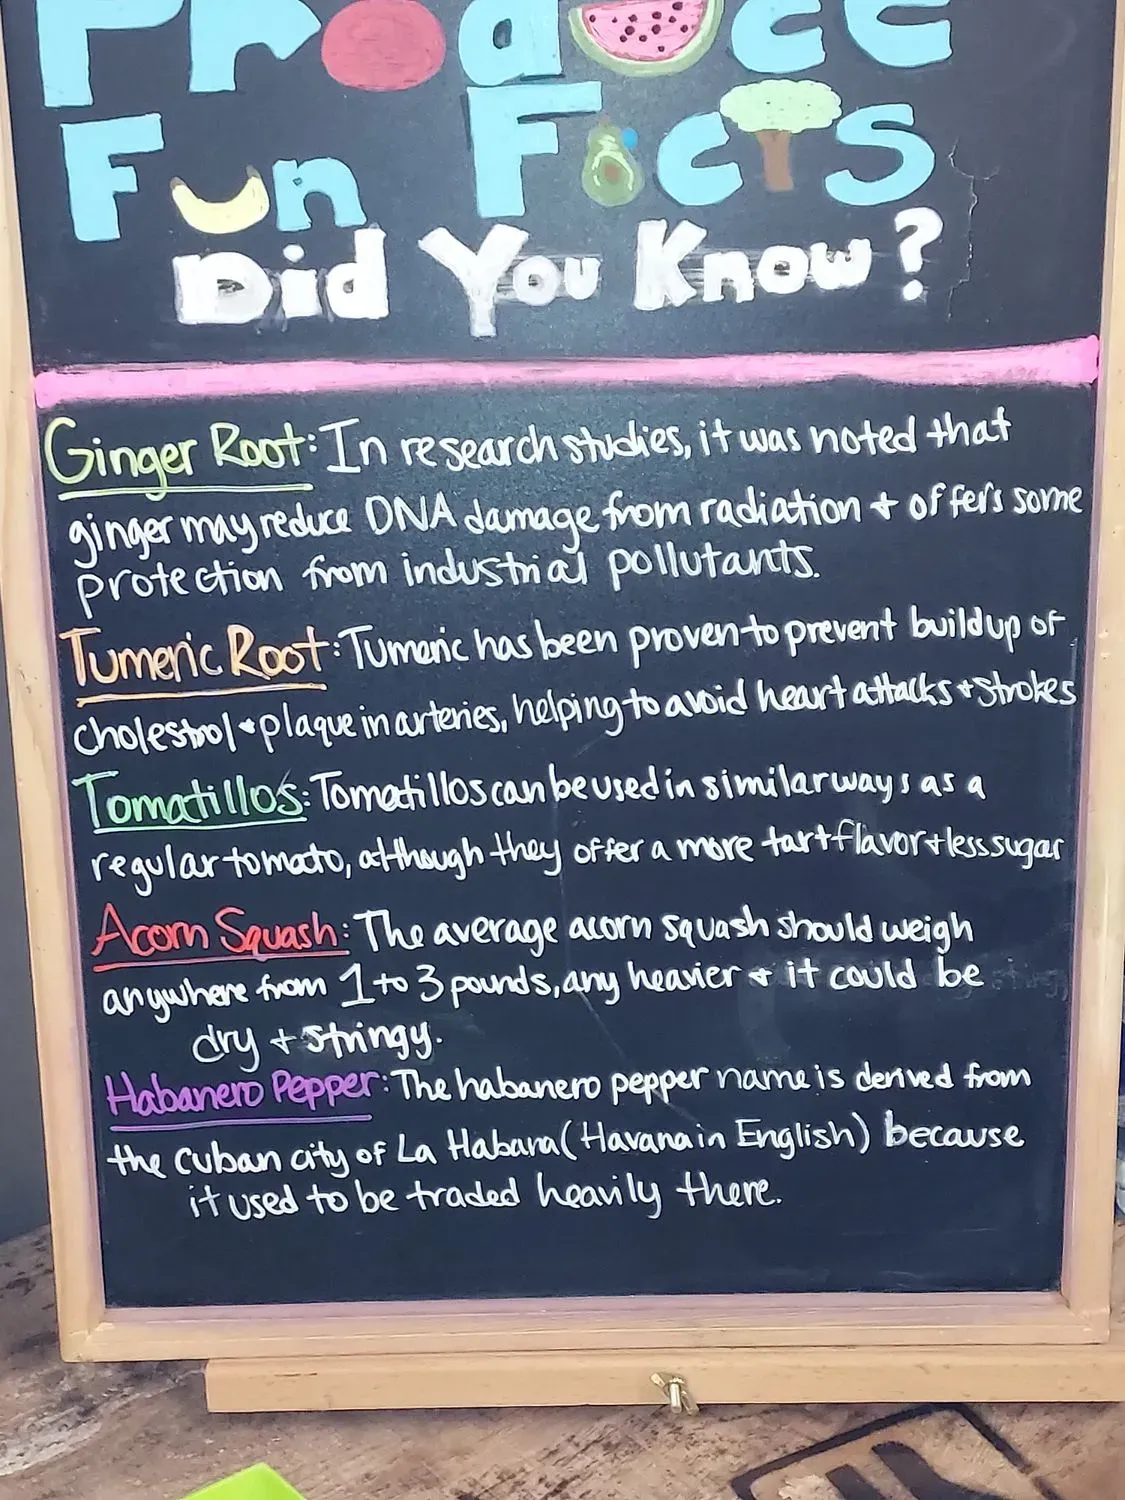 Produce
Fun Facts
Did You Know?
Ginger Root: In research studies, it was noted that
ginger may reduce DNA damage from radiation + offers some
protection from industrial pollutants.
Tumeric Root: Tumeric has been proven to prevent buildup of
cholestrol + plaque in arteries, helping to avoid heart attacks + strokes
Tomatillos: Tomatillos can be used in similar ways as a
regular tomato, although they offer a more tart flavor + less sugar
Acorn Squash: The average acorn squash should weigh
anywhere from 1 to 3 pounds, any heavier + it could be
dry + stringy.
Habanero Pepper: The habanero pepper name is derived from
the cuban city of La Habana (Havana in English) because
it used to be traded heavily there.